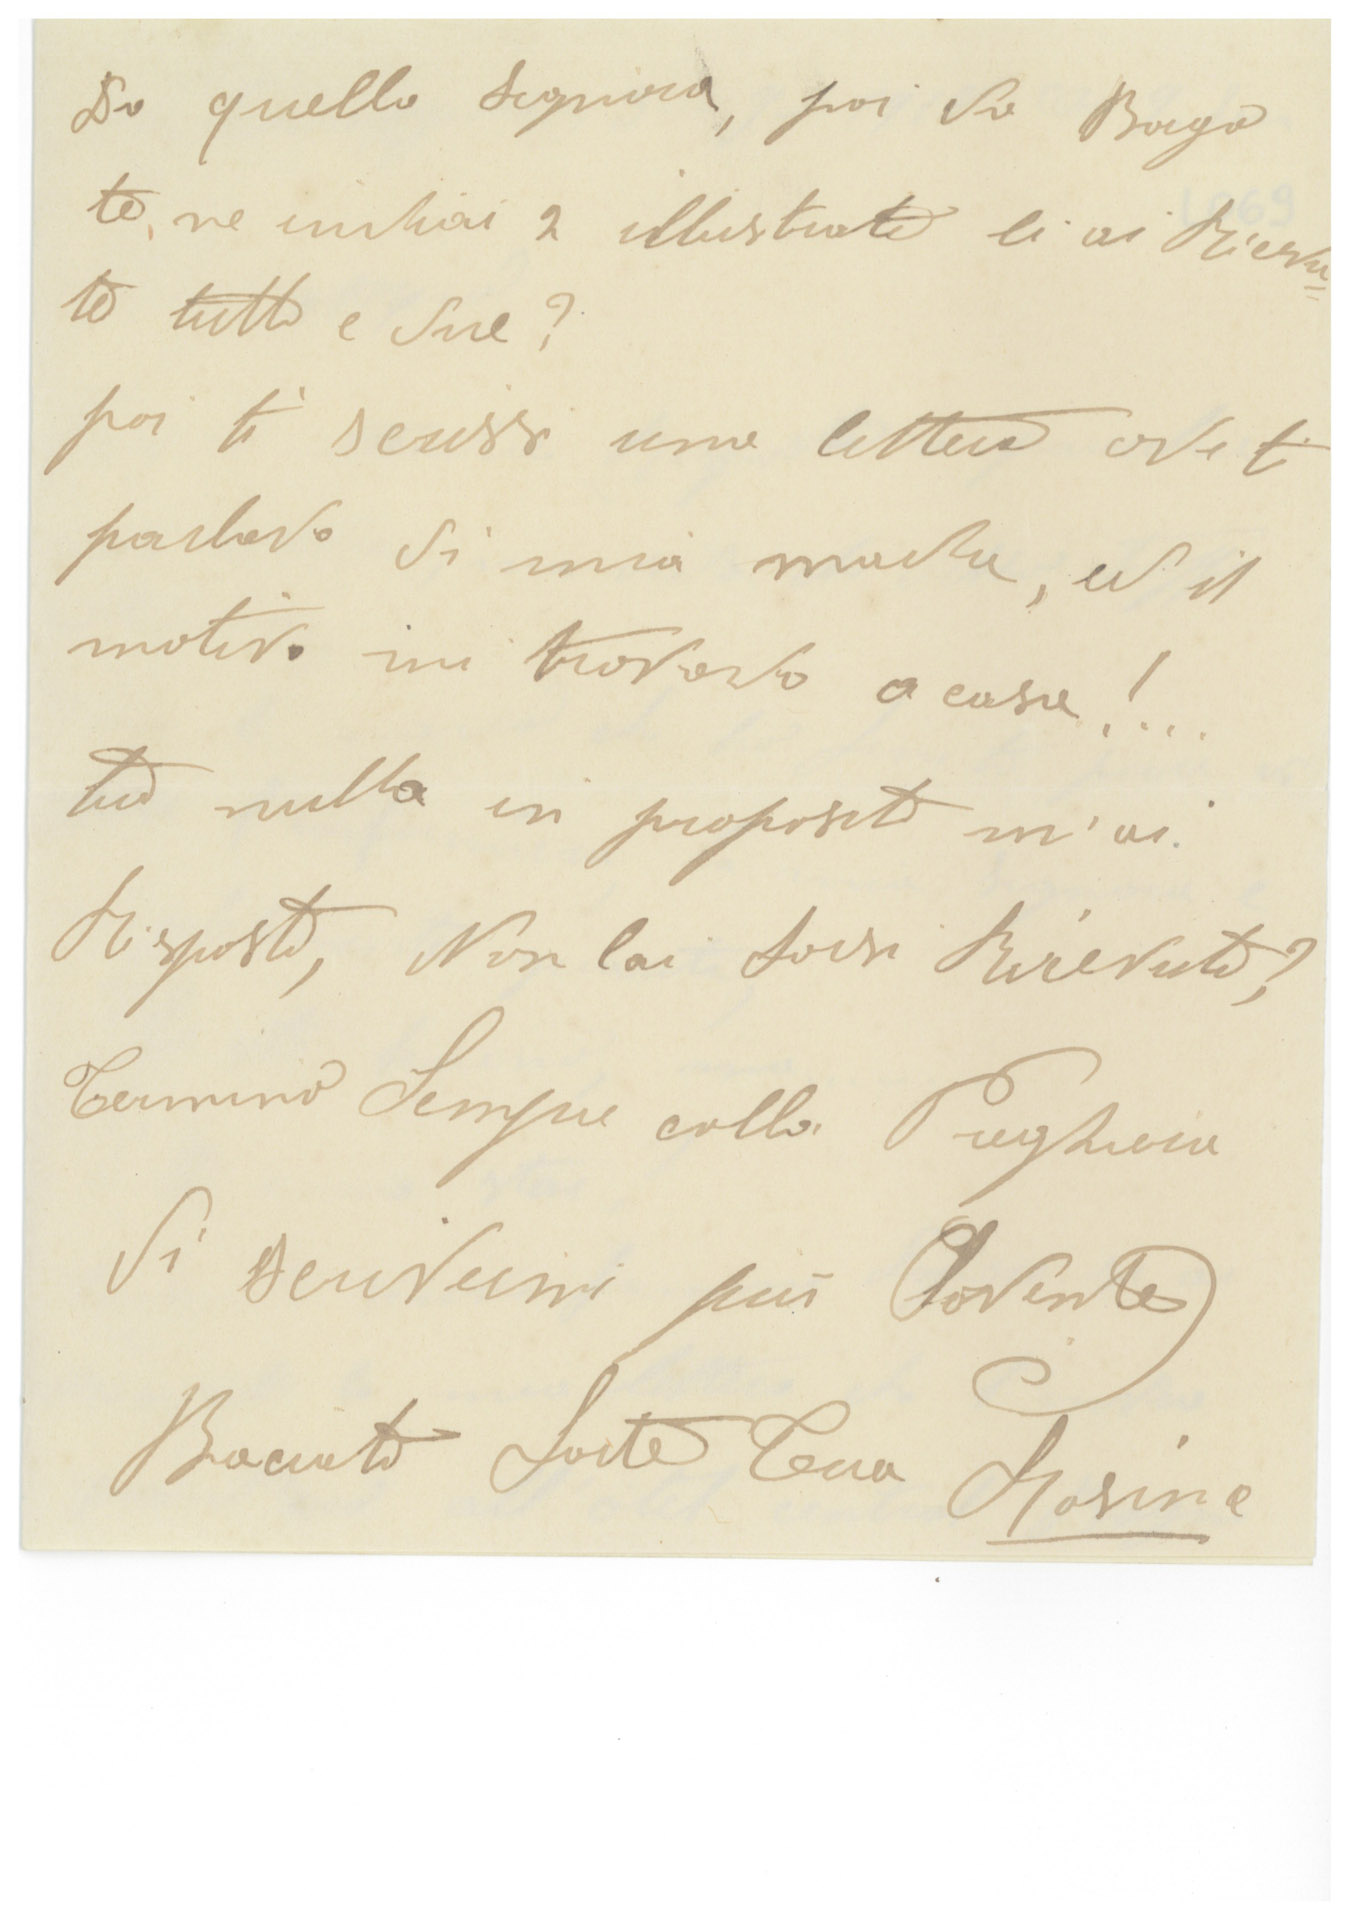 Da quella Signora, poi da Baga
te, ne inviai 2 illustrate li ai Ricevu=
te tutte e due?
poi ti scrissi una lettera ove ti
parlavo di mia madre, ed il
motivo mi trovavo a casa!....
tu nulla in proposito m'ai
Risposto, Non lai forse Ricevuta,?
Termino Sempre colla Preghiera
di scrivermi più Sovente
Baciato forte Tua Rosina